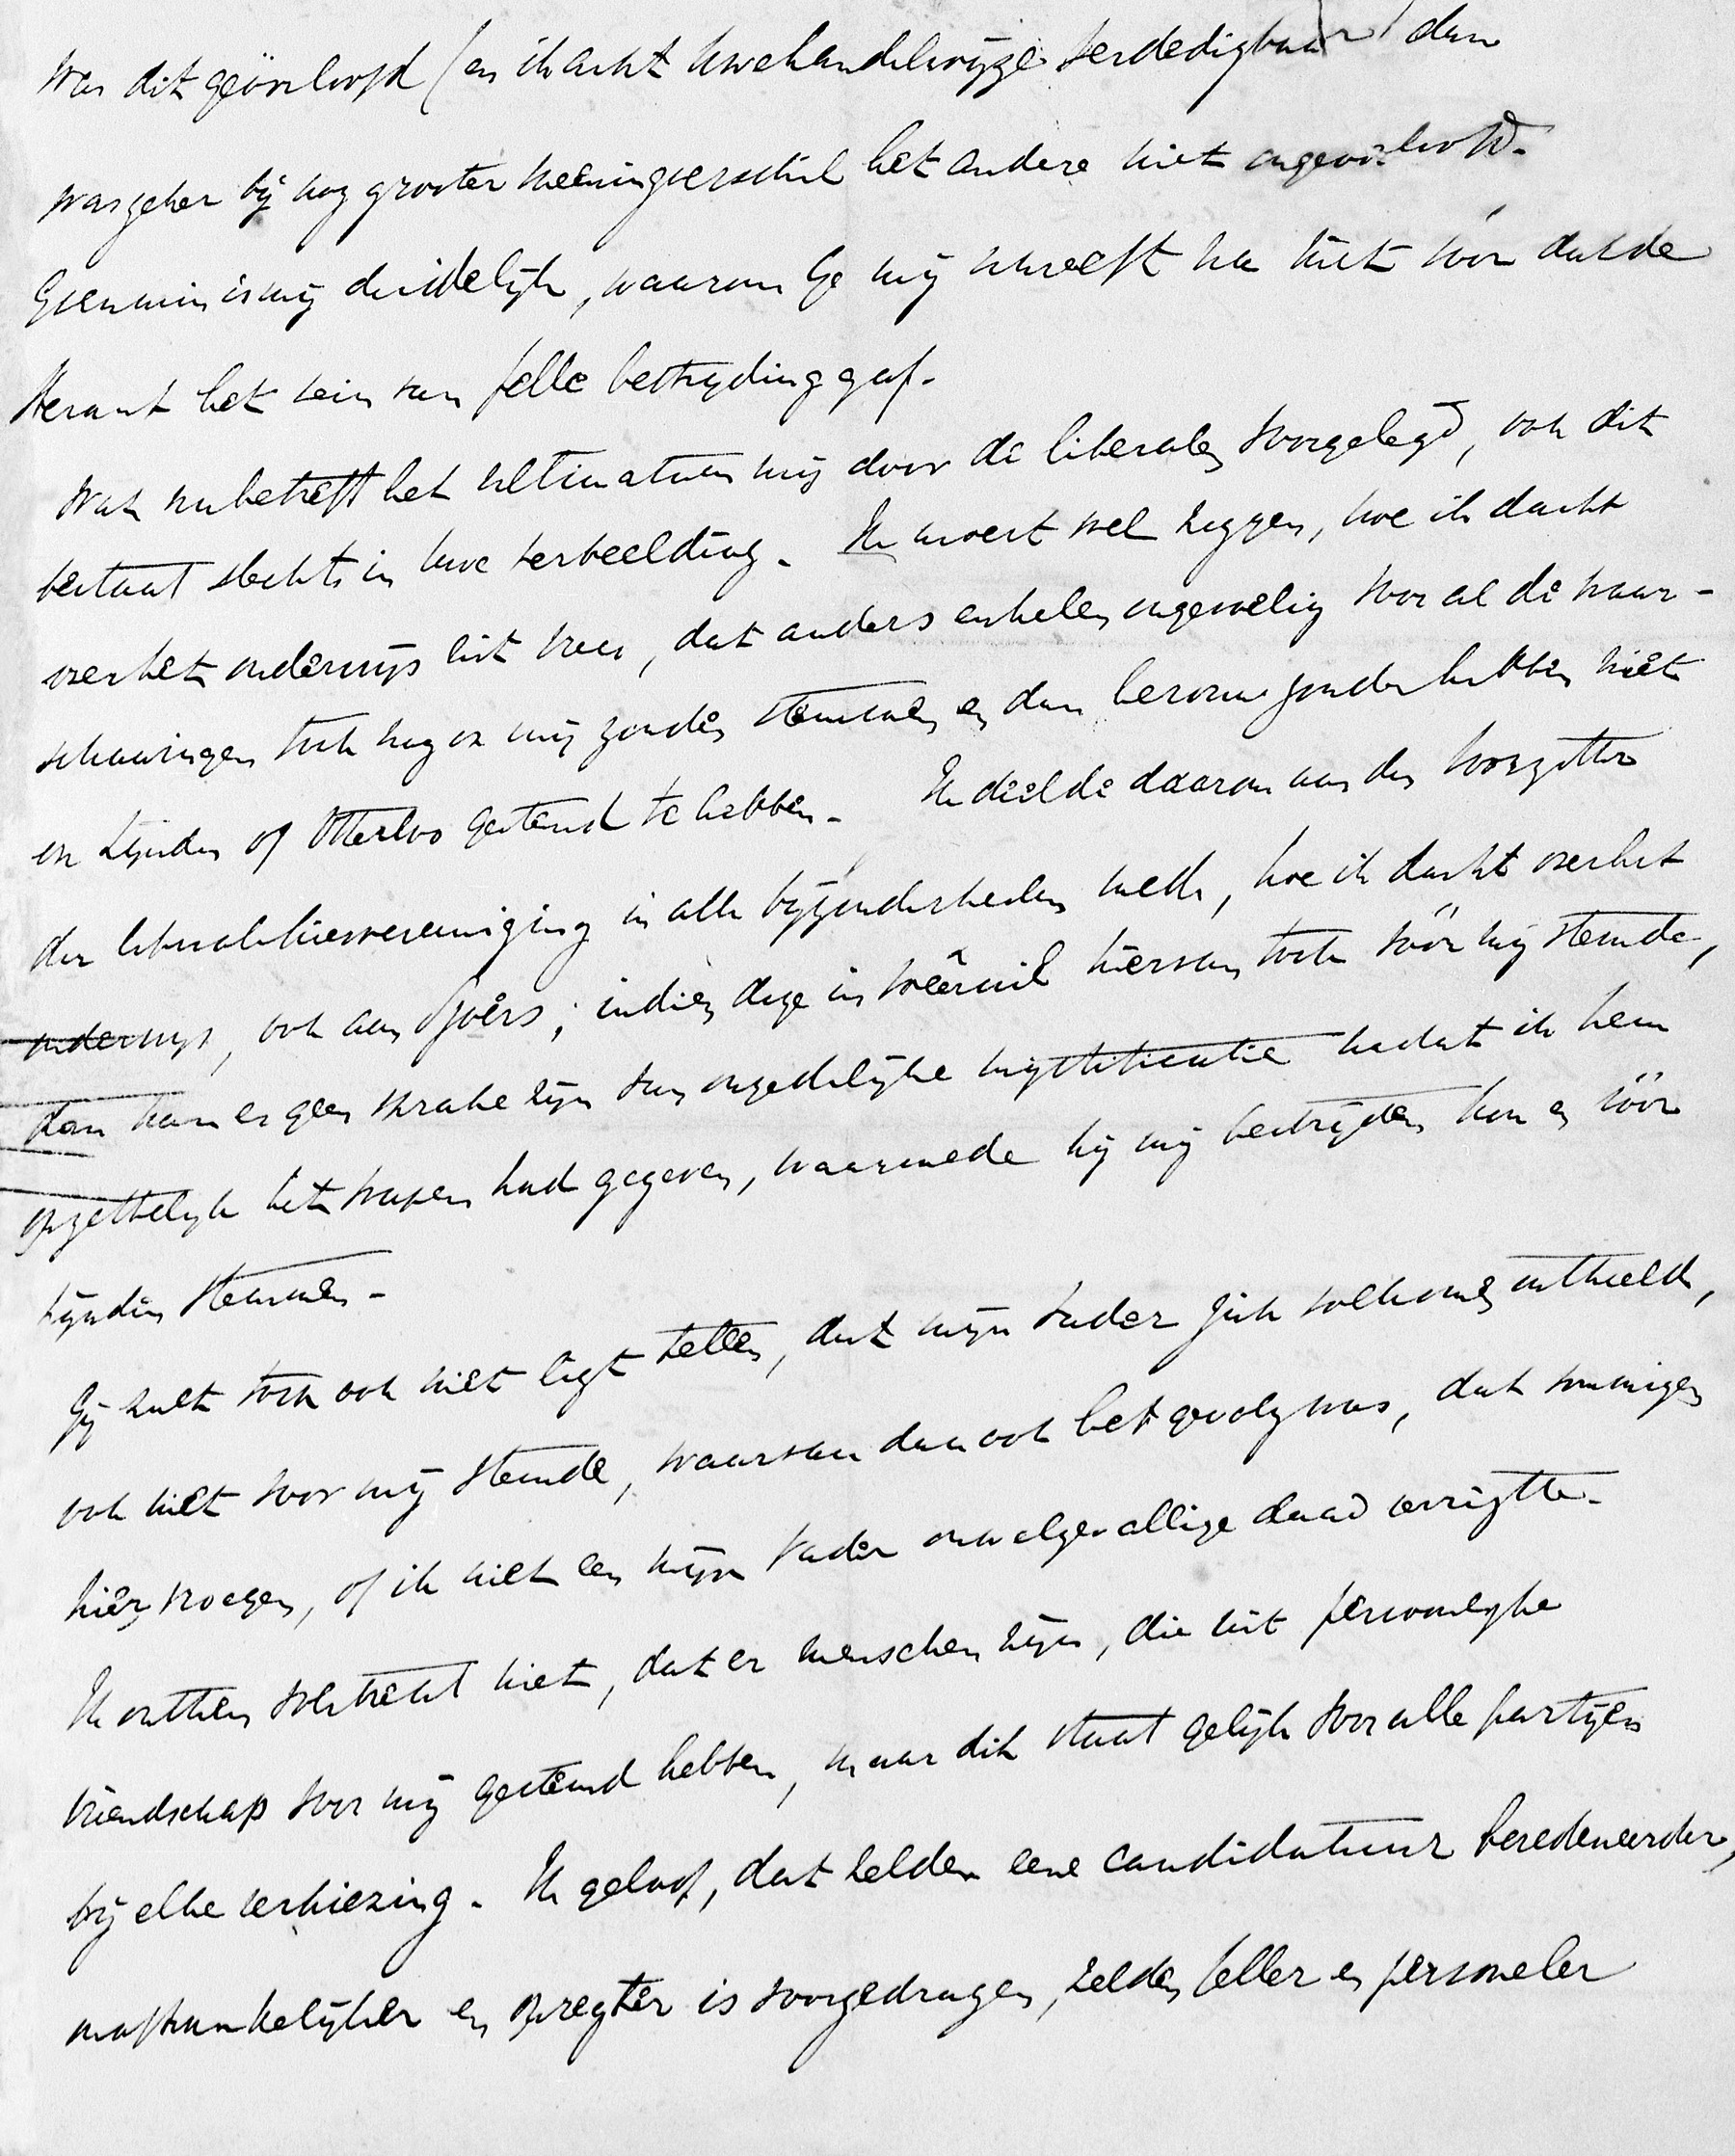 Was dit geöorloofd (en ik acht Uwe handelwijze verdedigbaar) dan
was zeker bij nog grooter meeningverschil het andere niet ongeoorloofd.
Geenmin is mij duidelijk, waarom Ge mij schreeft na niet vóór dat de
Heraut het sein van felle bestrijding gaf.
Wat nu betreft het ultimatum mij door de liberalen voorgelegd, ook dit
bestaat slechts in Uwe verbeelding. Ik moest wel zeggen, hoe ik dacht
over het onderwijs uit vrees, dat anders enkelen ongevoelig voor al de waar-
schuwingen toch nog op mij zouden stemmen en dan berouw zouden hebben niet
op Lynden of Otterloo gestemd te hebben. Ik deelde daarom aan den voorzitter
der liberale kiesvereeniging in alle bijzonderheden mede, hoe ik dacht over het
onderwijs, ook aan; indien deze in weêrwil hiervan toch vóór mij stemde,
dan kan er geen sprake zijn van onzedelijke mystificatie nadat ik hem
opzettelijk het wapen had gegeven, waarmede hij mij bestrijden kon en vóór
Lynden stemmen.
Gij zult toch ook niet ligt tellen, dat mijn vader zich volkomen onthield,
ook niet voor mij stemde, waarvan dan ook het gevolg was, dat sommigen
hier vroegen, of ik niet een mijn vader onwelgevallige daad verrigtte.
Ik ontken volstrekt niet, dat er menschen zijn, die uit persoonlijke
vriendschap voor mij gestemd hebben, maar dit staat gelijk voor alle partijen
bij elke verkiezing. Ik geloof, dat zelden eene candidatuur beredeneerder,
onafhankelijker en opregter is voorgedragen, zelden feller en personeler